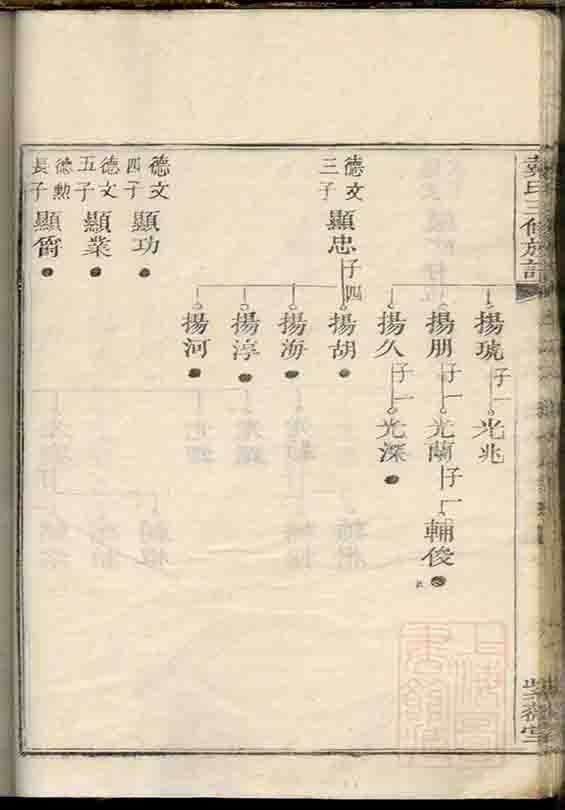 氏三修族譜
揚琥
子一
光兆
揚朋
子一
光蘭
子一
輔俊
揚久
子一
光深
德文
三子
顯忠
子四
揚胡
揚海
揚淳
揚河
德文
四子
顯功
德文
五子
顯業
德勲
長子
上海圖
書館藏